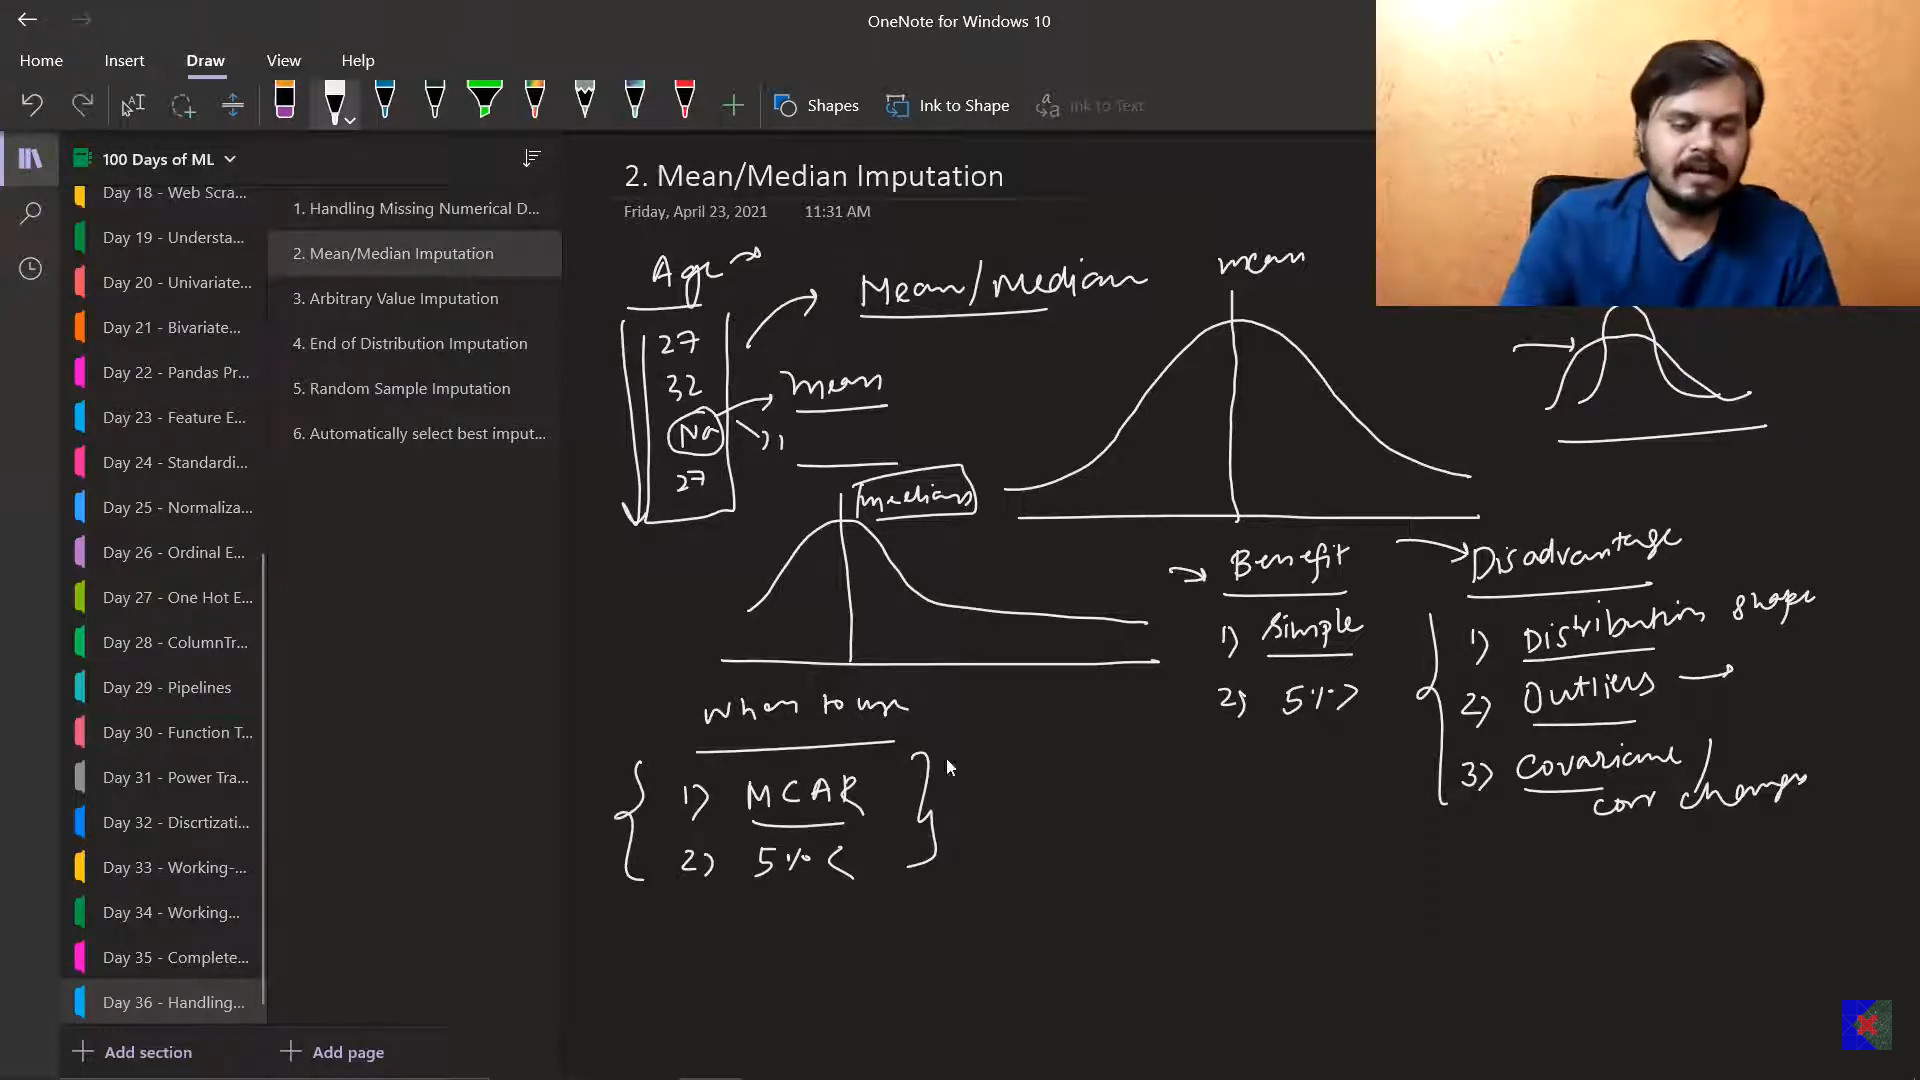 OneNote for Windows 10
Home Insert Draw View Help
Shapes Ink to Shape Ink to Text
100 Days of ML
Day 18 - Web Scra...
Day 19 - Understa...
Day 20 - Univariate...
Day 21 - Bivariate...
Day 22 - Pandas Pr...
Day 23 - Feature E...
Day 24 - Standardi...
Day 25 - Normaliza...
Day 26 - Ordinal E...
Day 27 - One Hot E...
Day 28 - ColumnTr...
Day 29 - Pipelines
Day 30 - Function T...
Day 31 - Power Tra...
Day 32 - Discrtizati...
Day 33 - Working-...
Day 34 - Working...
Day 35 - Complete...
Day 36 - Handling...
Add section
1. Handling Missing Numerical D...
2. Mean/Median Imputation
3. Arbitrary Value Imputation
4. End of Distribution Imputation
5. Random Sample Imputation
6. Automatically select best imput...
Add page
2. Mean/Median Imputation
Friday, April 23, 2021 11:31 AM
Age
27
32
Na
27
Mean/Median
mean
median
mean
When to use
1) MCAR
2) 5% <
Benefit
1) Simple
2) 5% >
Disadvantage
1) Distribution shape
2) Outliers
3) Covariance /
corr changes